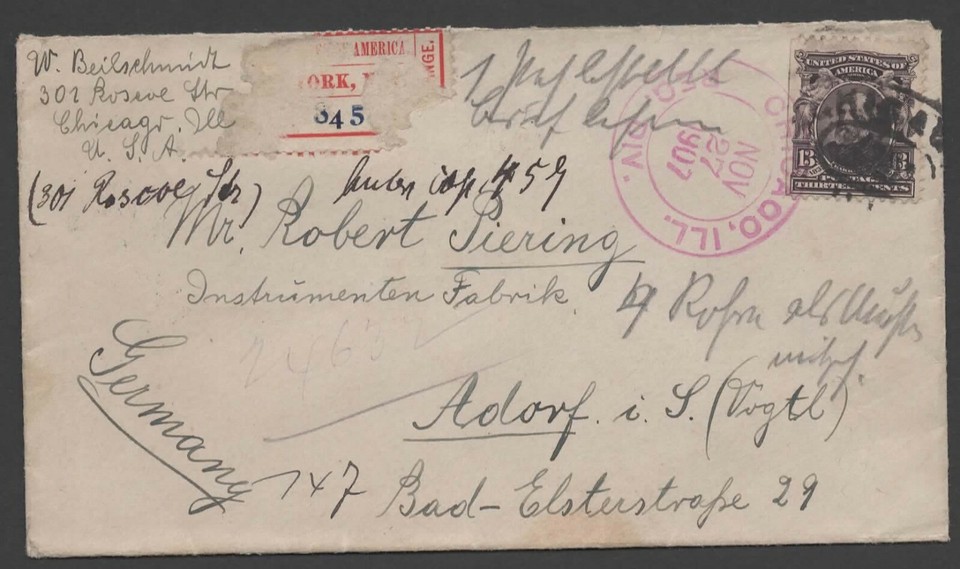 W. Beilschmidt
301 Roscoe Str
Chicago. Ill
U. S. A.
(301 Roscoe Str)
AMERICA
ORK, N
NGE.
845
REG. DIV.
NOV
27
1907
CHICAGO, ILL.
UNITED STATES OF
AMERICA
13 13
POSTAGE
THIRTEEN CENTS
Mr. Robert Piering
Instrumenten Fabrik
4 Rohre als Muster
Adorf. i. S. (Vogtl)
Germany
147 Bad-Elsterstraße 29